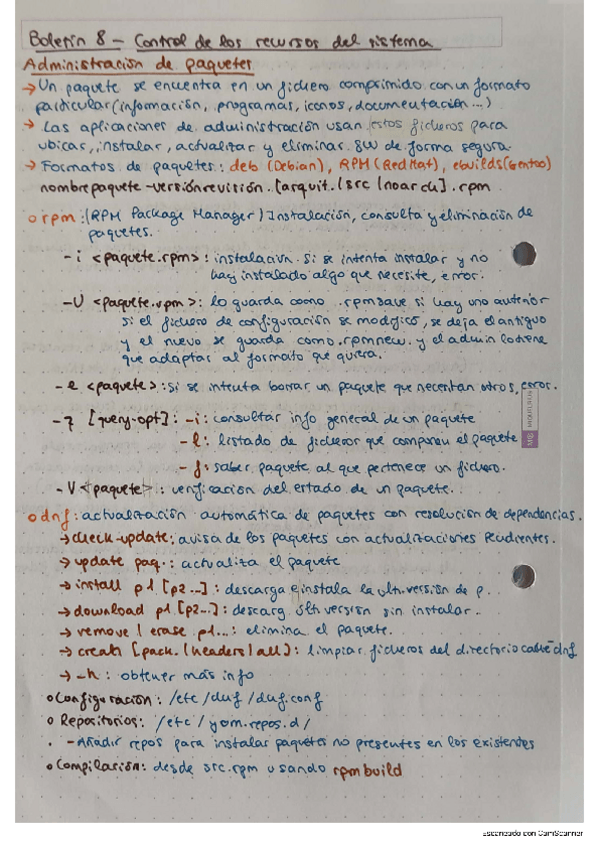 Boletín 8 - Control de los recursos del sistema
Administración de paquetes
→ Un paquete se encuentra en un fichero comprimido con un formato
particular (información, programas, iconos, documentación...)
→ Las aplicaciones de administración usan estos ficheros para
ubicar, instalar, actualizar y eliminar SW de forma segura.
→ Formatos de paquetes: deb (Debian), RPM (RedHat), ebuilds (Gentoo)
nombrepaquete-versiónrevisión.[arquit.|src|noarch].rpm
o rpm: (RPM Package Manager) Instalación, consulta y eliminación de
paquetes.
-i <paquete.rpm>: instalación. Si se intenta instalar y no
hay instalado algo que necesite, error.
-U <paquete.rpm>: lo guarda como .rpmsave si hay uno anterior
si el fichero de configuración se modificó, se deja el antiguo
y el nuevo se guarda como .rpmnew. y el admin lo tiene
que adaptar al formato que quiera.
-e <paquete>: si se intenta borrar un paquete que necesitan otros, error.
-q [query-opt]: -i: consultar info general de un paquete
-l: listado de ficheros que componen el paquete
-f: saber paquete al que pertenece un fichero.
-V <paquete>: verificación del estado de un paquete.
o dnf: actualización automática de paquetes con resolución de dependencias.
→ check-update: avisa de los paquetes con actualizaciones pendientes.
→ update paq.: actualiza el paquete
→ install p1 [p2...]: descarga e instala la ult. versión de p...
→ download p1 [p2...]: descarg últ versión sin instalar..
→ remove | erase p1...: elimina el paquete.
→ [pack. | headers | all]: limpiar ficheros del directorio caché dnf
→ -h: obtener más info
o Configuración: /etc/dnf/dnf.conf
o Repositorios: /etc/yum.repos.d/
- Añadir repos para instalar paquetes no presentes en los existentes
o Compilación: desde src.rpm usando rpmbuild
Escaneado con CamScanner